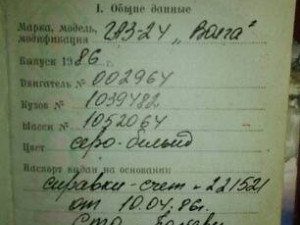 I. Общие данные
Марка, модель,
модификация 283-24 „Волга"
Выпуск 1986 г.
Двигатель № 002964
Кузов № 1039482
Шасси № 1052064
Цвет серо-белый
Паспорт выдан на основании
справки-счет - 221521
от 10.04.86г.